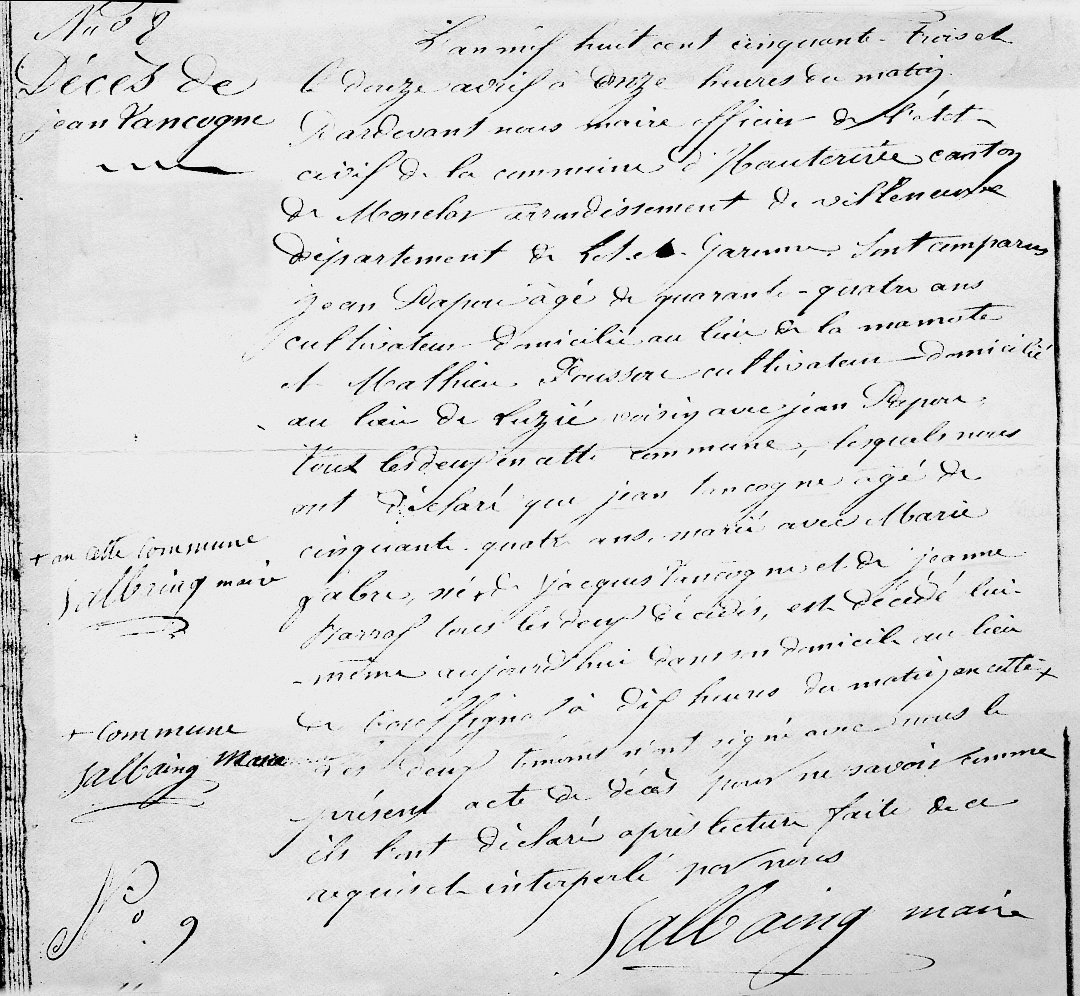 No 8
Décès de
jean Vancogne
L'an mil huit cent cinquante-trois et
le douze avril à onze heures du matin.
Pardevant nous maire officier de l'état-
civil de la commune d'Hauterive canton
de Monclar arrondissement de villeneuve
département de Lot et Garonne. Sont comparus
jean Dapou âgé de quarante-quatre ans
cultivateur domicilié au lieu de la
et Mathieu cultivateur domicilié
au lieu de Luzié voisin avec jean Dapou.
tous les deux en cette commune, lesquels nous
ont déclaré que jean Vancogne âgé de
cinquante-quatre ans, marié avec Marie
fabre, né + de jacques Vancogne et de jeanne
tous les deux décédés, est décédé lui-
-même aujourd'hui dans son domicile au lieu
de à dix heures du matin en cette +
Les deux témoins n'ont signé avec nous le
présent acte de décès pour ne savoir comme
ils l'ont déclaré après lecture faite de ce
requis et interpellé par nous
Salbaing maire
+ en cette commune
Salbaing maire
+ commune
Salbaing Maire
No 9